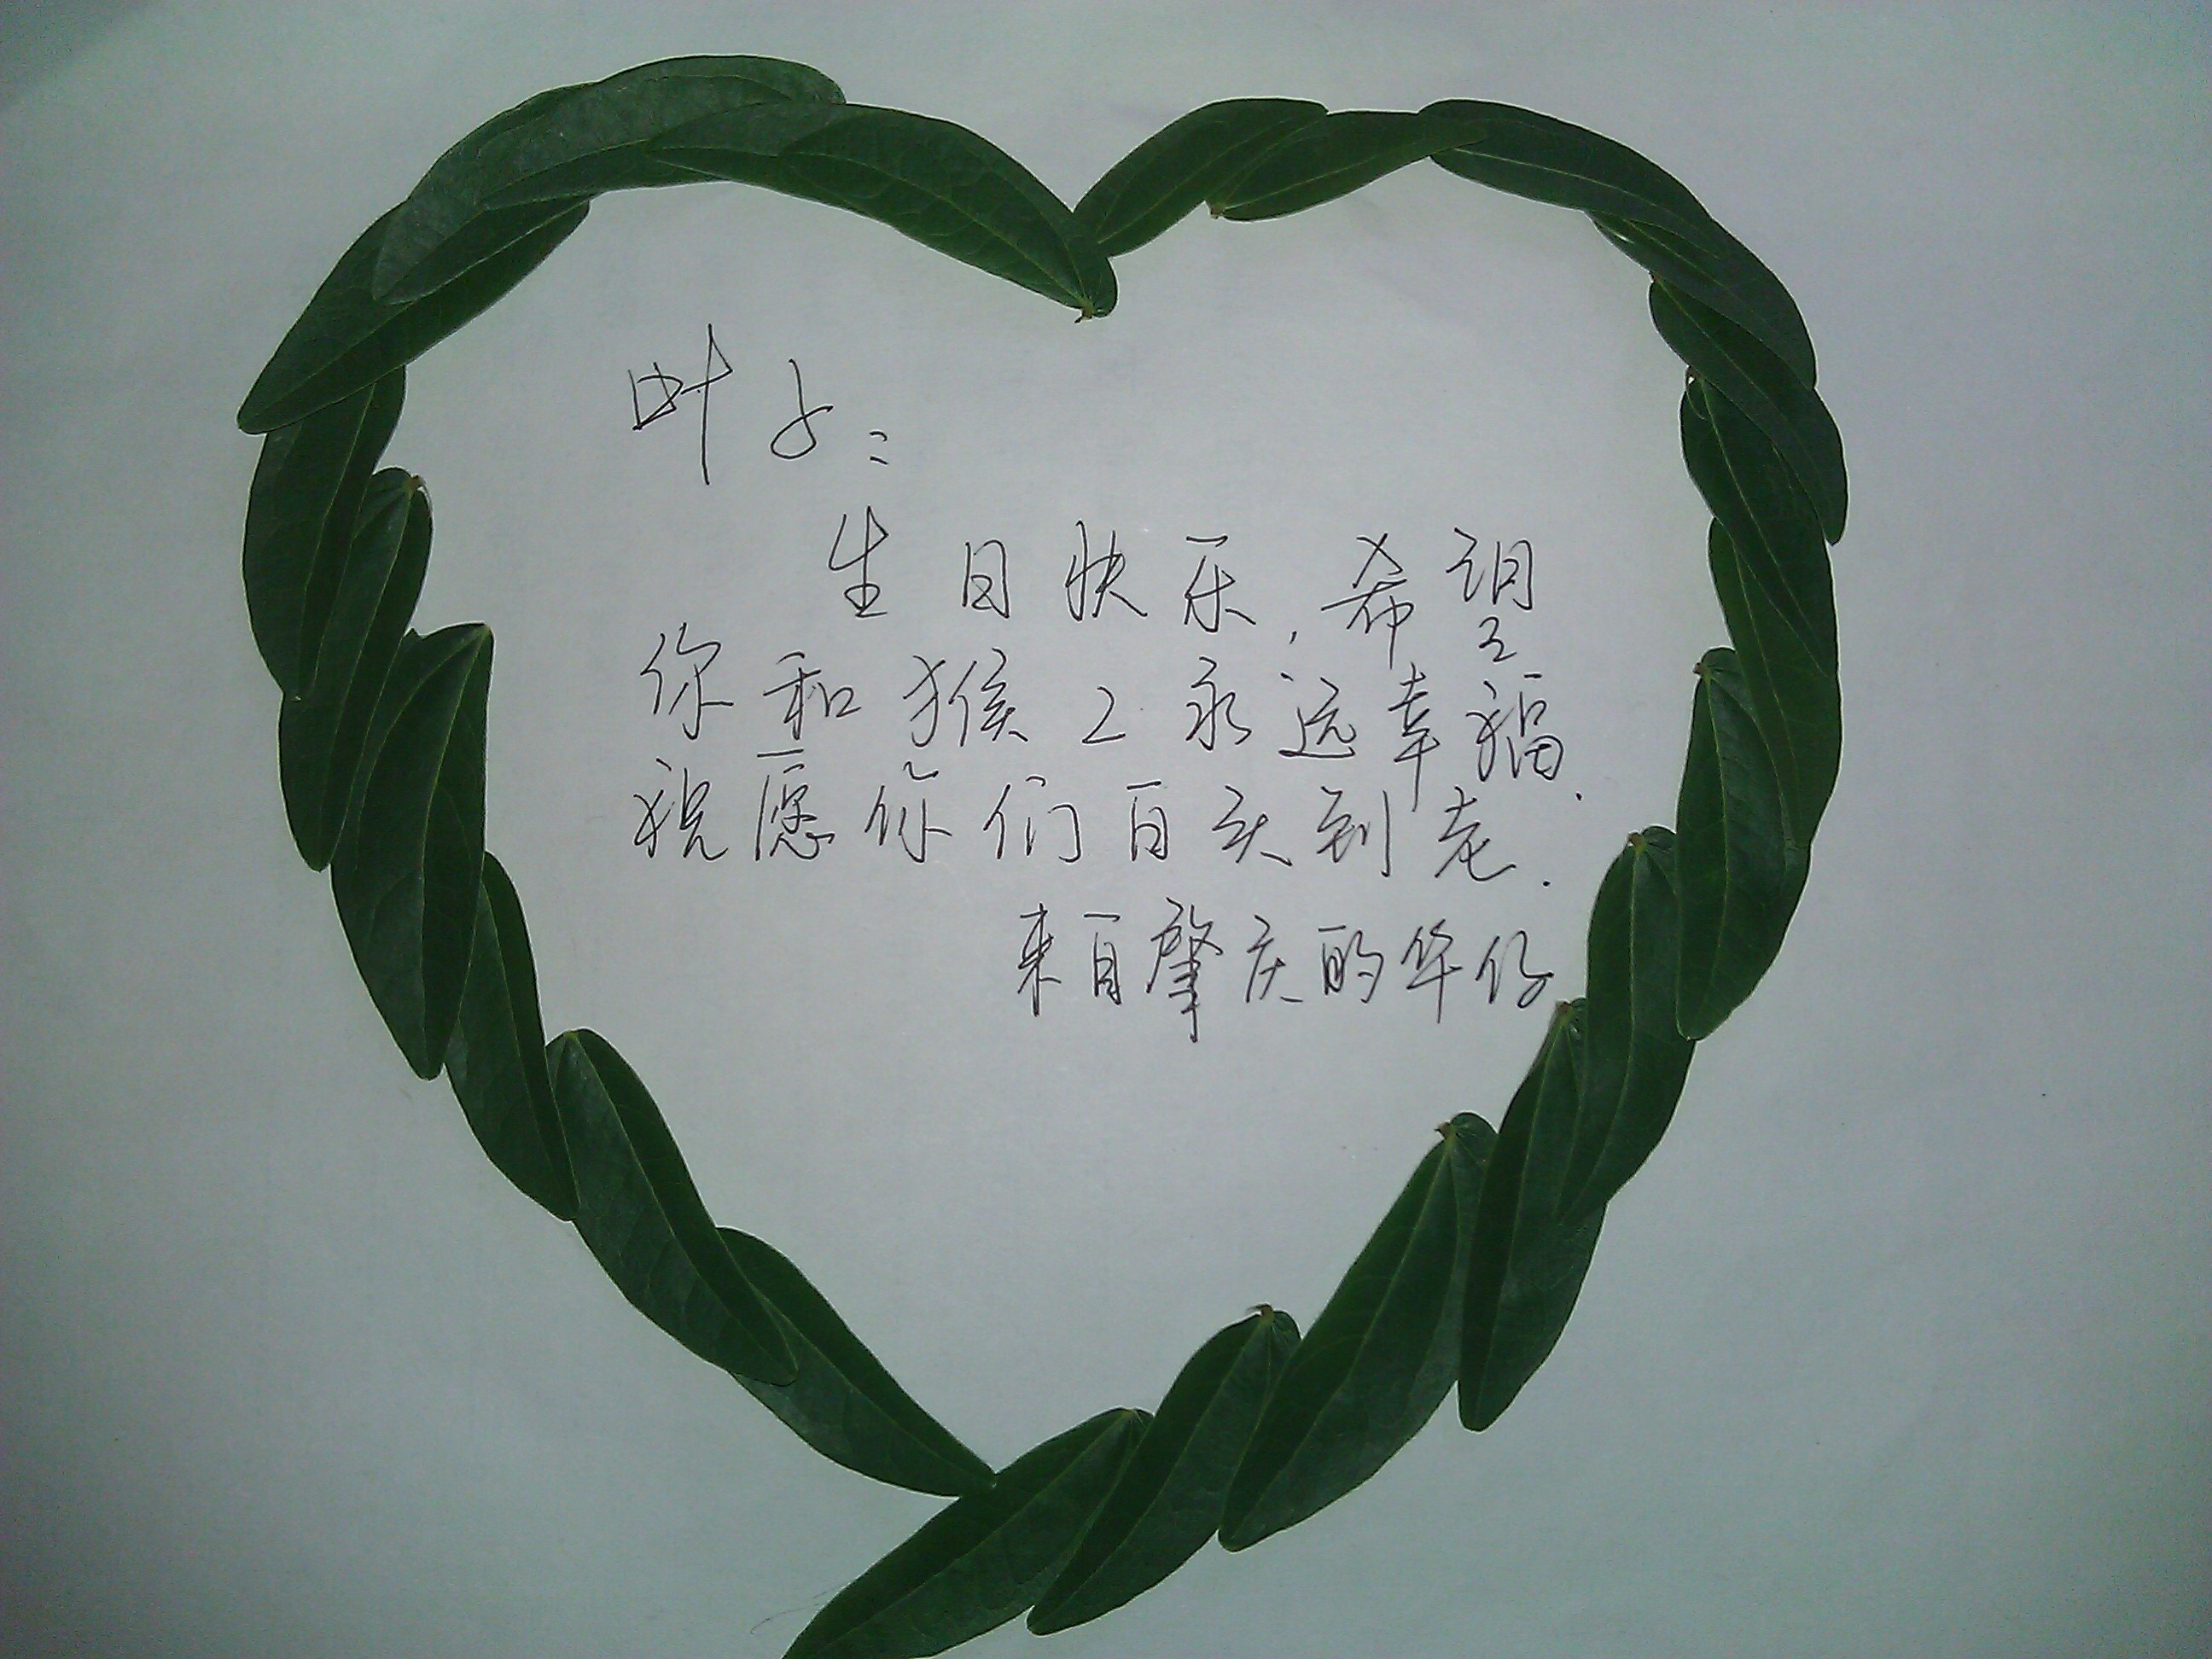 叶子：
生日快乐，希望
你和猴2永远幸福.
祝愿你们百头到老.
来自肇庆的华仔